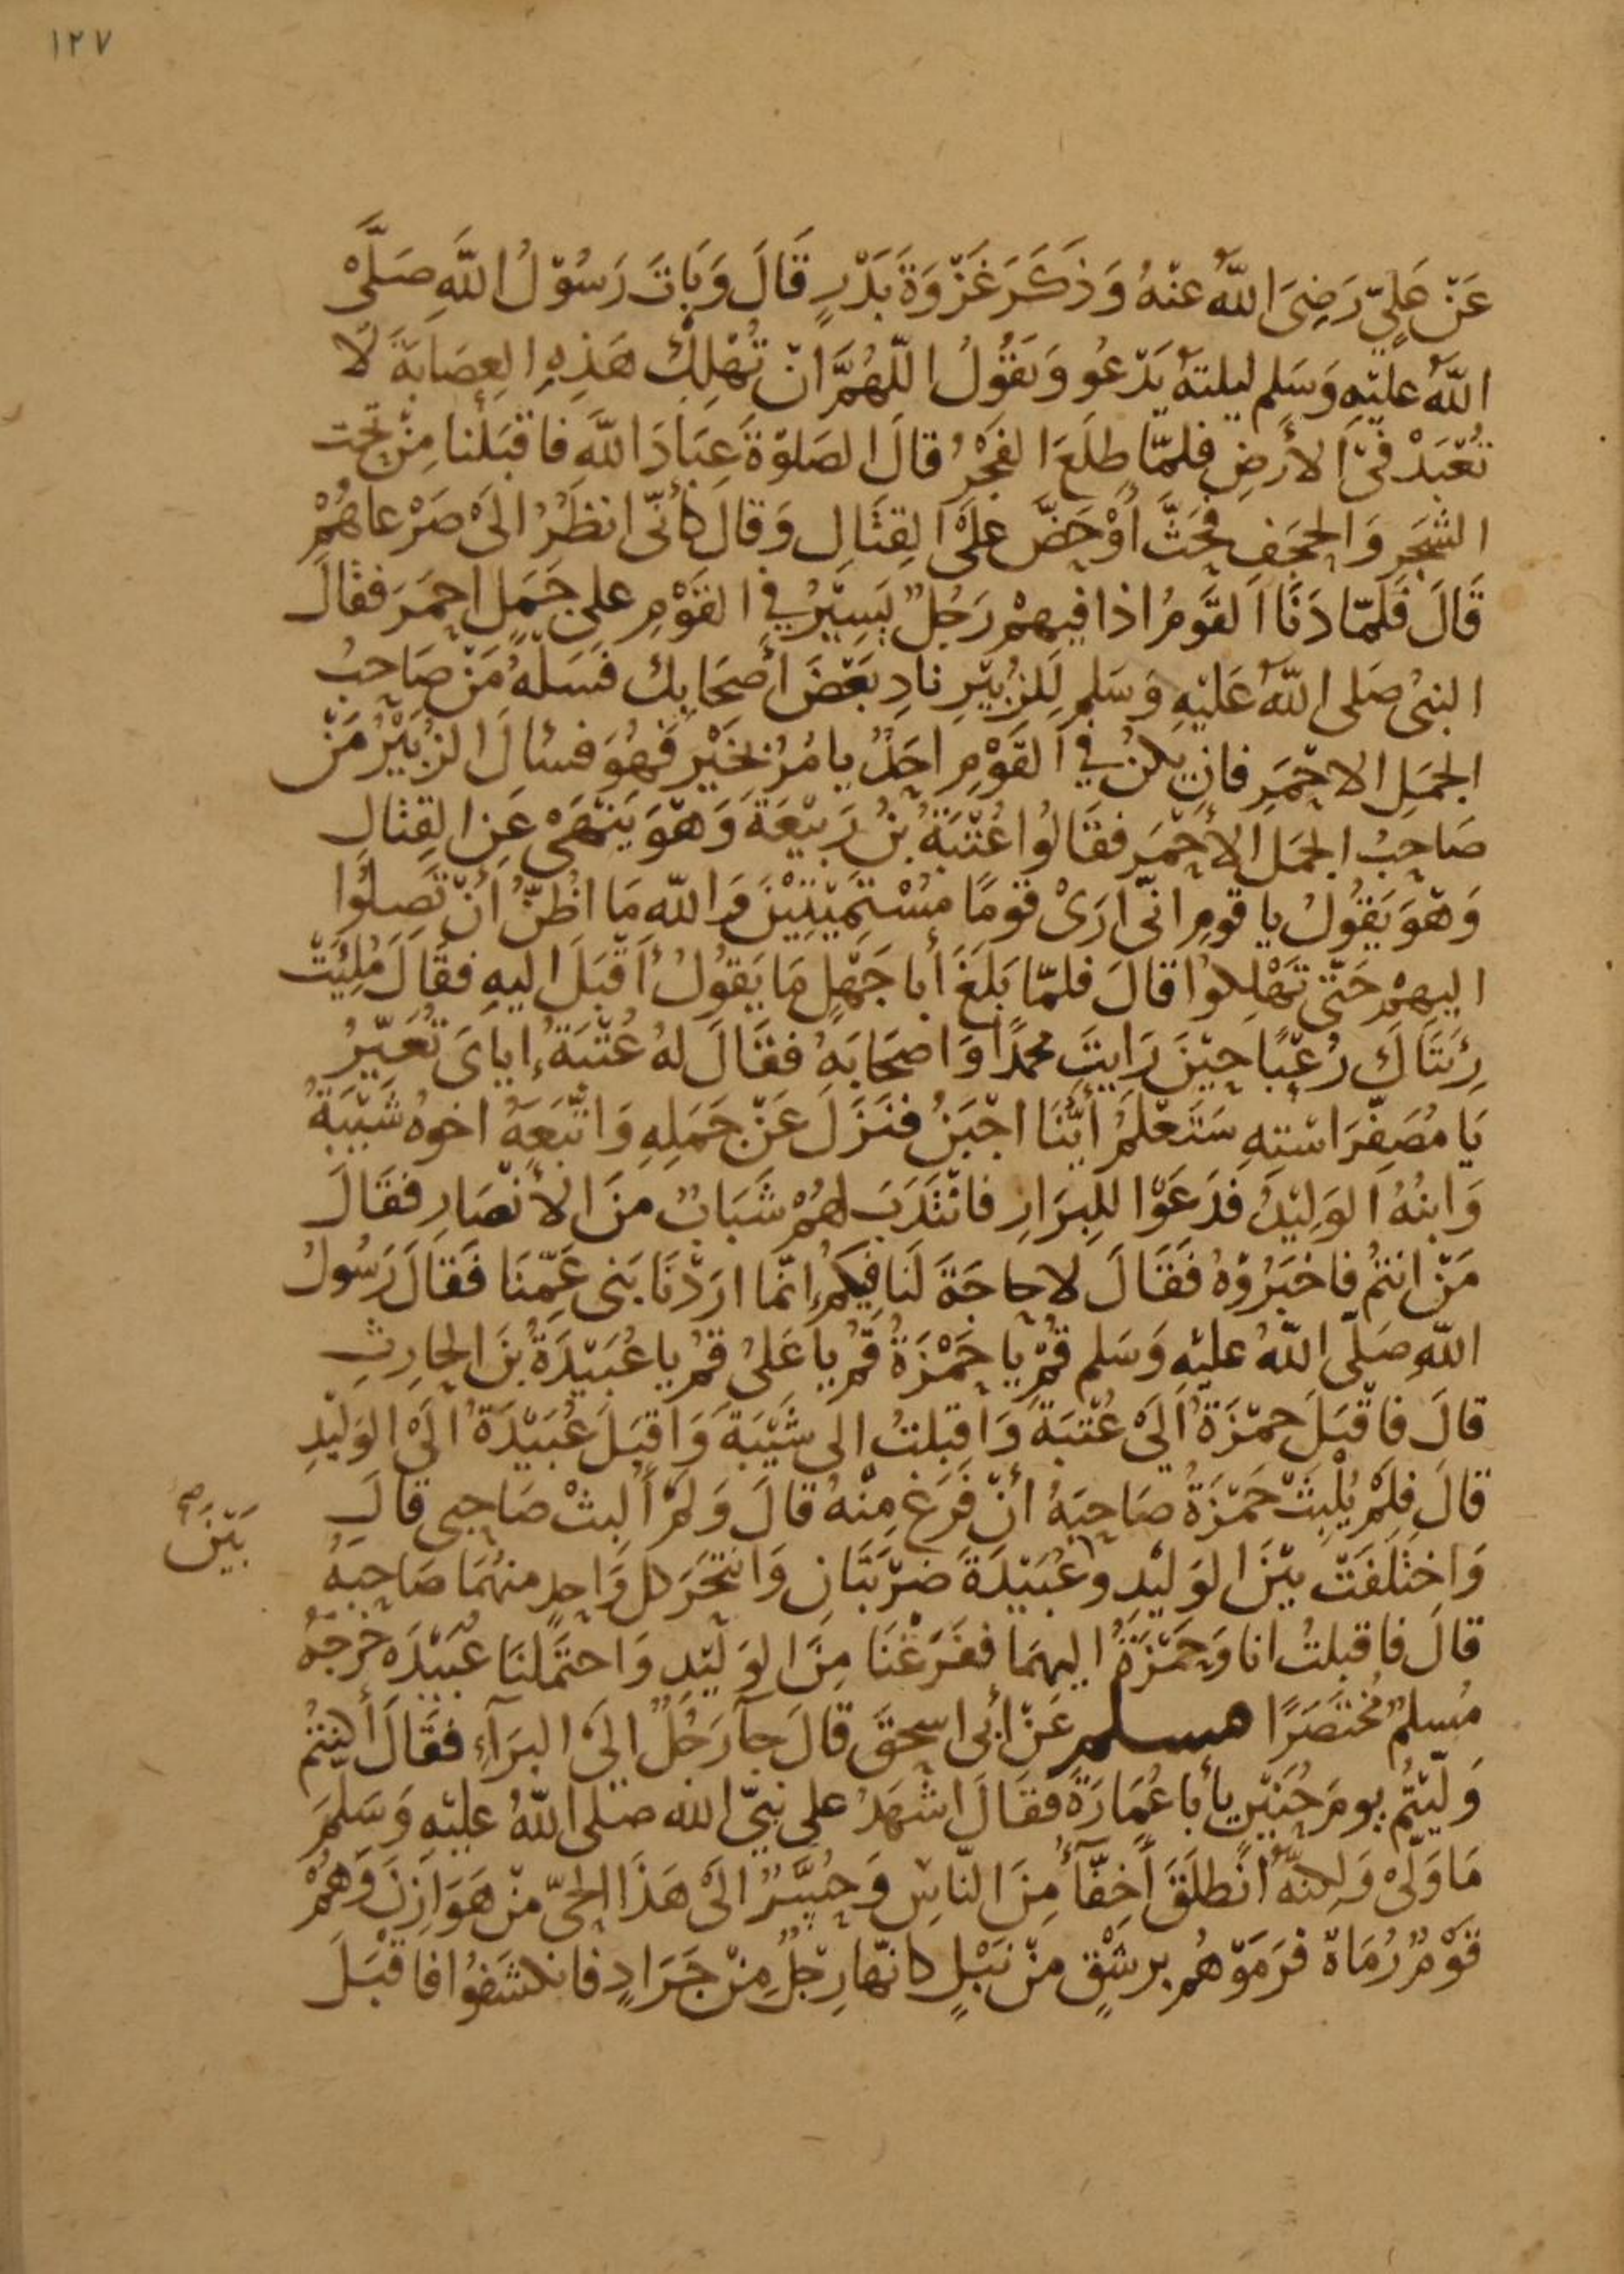 ١٢٧
عَنْ عَلِيٍّ رَضِىَ اللّٰهُ عَنْهُ وَذَكَرَ غَزْوَةَ بَدْرٍ قَالَ وَبَاتَ رَسُوْلُ اللّٰهِ صَلَّىْ
اللّٰهُ عليْهِ وَسَلم ليلتهُ يَدْعُو وَيَقُولُ اللّهُمَّ انْ تُهْلِكْ هَذِهِ العِصَابَةَ لَا
تُعْبَدْ فِى الأَرضِ فلمّا طلَعَ الفَجْرُ قالَ الصَلوٰةَ عِبَادَ اللّٰهِ فاقبَلْنا مِنْ تحت
الشجَرِ وَالحجَفِ فحَثَّ اَوْحَضَّ عَلىْ القِتَالِ وَقالَ كأنّى انظُرُ الىْ صَرْعاهُمْ
قَالَ فَلَمّا دَنَا القَومُ اذا فيهمْ رَجُلٌ يَسِيْرُ فِي القَوْمِ على جَمَلٍ احمَرَ فقَالَ
النبىُ صَلى اللّٰهُ عَلَيْهِ وَسَلم لِلزُبَيْرِ نادِ بَعْضَ أصحَابِكَ فسَلْهُ مَنْ صَاحِبُ
الجمَلِ الاحْمَرِ فان يكنْ في القَوْمِ احَدٌ يامُرُ بخَيْرٍ فهُوَ فسْالَ الزُبَيْرُ مَنْ
صَاحِبُ الجمَل الأحْمَر فقَالُوا عُتْبَةُ بنُ رَبِيْعَةَ وَهوَ يَنْهَىْ عَنِ القِتالِ
وَهوَ يَقُولُ يا قومِ انّى ارَىْ قومًا مُسْتَمِيْتِيْنَ وَاللّهِ مَا اظُنُّ أنْ تَصِلُوا
اليهمْ حَتّى تَهْلِكُوا قالَ فلمّا بَلَغَ أبا جَهْلٍ مَا يَقُولُ أقْبَلَ اليهِ فقَالَ مُلِئَتْ
رِئَتَاكَ رُعْبًا حِيْنَ رَايتَ محمدًا وَاصحَابَهُ فقَالَ لهُ عُتْبَةُ إياىَ تُعَيِّرُ
يَا مُصَفِّرَ اسْتِهِ سَتَعْلَمُ أَيُّنَا اجْبَنُ فنَزَلَ عَنْ جَمَلِهِ وَاتّبَعَهُ اخوهُ شَيْبَةُ
وَابنُهُ الوَلِيْدُ فدَعَوْا للبِرَازِ فانْتَدَبَ لهُمْ شَبَابٌ منَ الأنصَارِ فقَالَ
مَنْ انتُم فاخبَرُوْهُ فَقَالَ لاحاجَةَ لَنا فِيكم إنّما ارَدْنَا بَنى عَمِّنَا فقَالَ رَسُولُ
اللّهِ صَلّى اللّهُ عليْهِ وَسَلم قمْ يا حَمْزَةُ قمْ يا عَلىُ قمْ يا عُبَيْدَةُ بنَ الحارِثِ
قالَ فاقْبَلَ حمْزَةُ الَىْ عُتْبَةَ وَأقبلتُ الى شَيْبَةَ وَاقبَلَ عُبَيْدَةُ الَىْ الوَلِيْدِ
قالَ فلمْ يُلْبِثْ حَمْزَةُ صَاحِبَهُ أنْ فَرَغَ مِنْهُ قالَ وَلمْ أُلبِثْ صَاحِبِى قالَ
وَاختَلفَتْ بيْنَ الوَلِيْدِ وعُبَيْدَةَ ضَرْبَتَانِ وَانتَحَرَ كل وَاحِدٍ منهُمَا صَاحِبَهُ
بَيْنَ صح
قالَ فاقبلتُ انا وَحَمْزَةُ اليهمَا ففَرَغْنَا مِنَ الوَلِيْدِ وَاحتَمَلنَا عُبَيْدَه خرجهُ
مُسلمٌ مُختَصَرًا مسلم عَنْ أبى اسحٰقَ قالَ جآ رَجُلٌ الىَ البَرَآءِ فقَالَ أكنتُمْ
وَلّيْتُم يومَ حُنَيْنٍ يا أبا عُمَارَةَ فقَالَ اشْهَدُ على نبِيّ اللّه صَلى اللّهُ عليْهِ وَسَلمَ
مَا وَلّىْ وَلٰكِنّهُ انْطلَقَ أخِفّآءُ مِنَ النّاسِ وَحُسَّرٌ الَىْ هَذَا الحَىّ منْ هَوَازِنَ وَهُمْ
قوْمٌ رُمَاةٌ فرَمَوْهُم برشْقٍ منْ نَبْلٍ كانّها رِجْلٌ مِنْ جَرَادٍ فانكشَفُوا فاقبَلَ